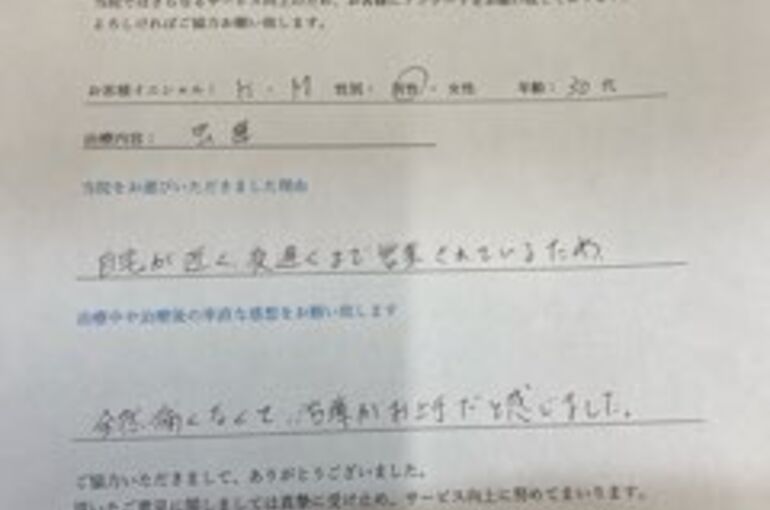 当院ではさらなるサービス向上のため、お客様にアンケートをお願い致して
よろしければご協力お願い致します。
お客様イニシャル： H ・ M 性別： 男性 ・ 女性 年齢： 30 代
治療内容： 虫歯
当院をお選びいただきました理由
自宅が近く、夜遅くまで営業されているため
治療中や治療後の率直な感想をお願い致します
全然痛くなくて、治療がお上手だと感じました。
ご協力いただきまして、ありがとうございました。
頂いたご意見に関しましては真摯に受け止め、サービス向上に努めてまいります。